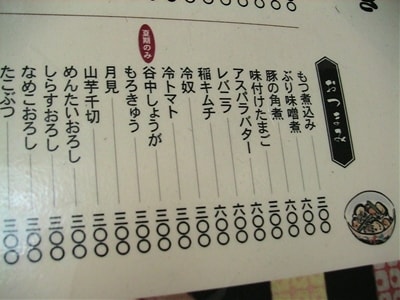 もつ煮込み 三〇〇
ぶり味噌煮 六〇〇
豚の角煮 六〇〇
味付けたまご 三〇〇
アスパラバター 六〇〇
レバニラ 六〇〇
稲キムチ 六〇〇
冷奴 三〇〇
冷トマト 三〇〇
夏期のみ
谷中しょうが 三〇〇
もろきゅう 三〇〇
月見 三〇〇
山芋千切 三〇〇
めんたいおろし 三〇〇
しらすおろし 三〇〇
なめこおろし 三〇〇
たこぶつ